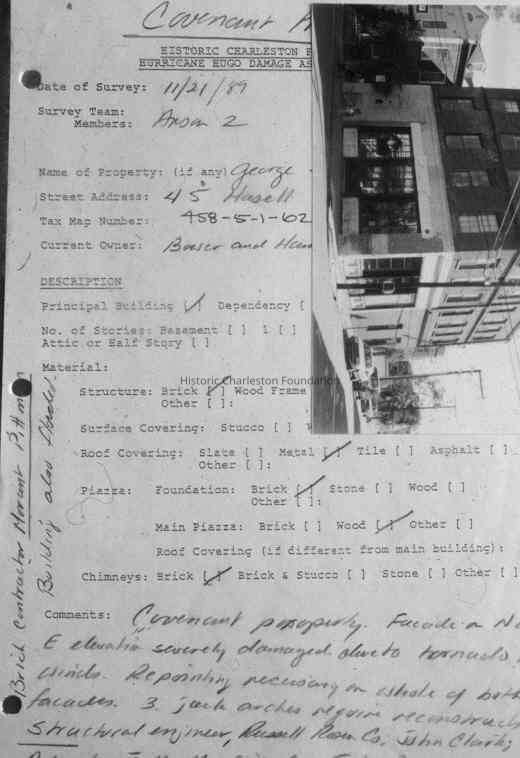 Covenant
HISTORIC CHARLESTON F
HURRICANE HUGO DAMAGE AS
Date of Survey: 11/21/89
Survey Team:
Members: Anson 2
Name of Property: (if any) George
Street Address: 45 Hasell
Tax Map Number: 458-5-1-62
Current Owner: and
DESCRIPTION
Principal Building [✓] Dependency [
No. of Stories: Basement [ ] 1 [ ]
Attic or Half Story [ ]
Material:
Historic Charleston Foundation
Structure: Brick [✓] Wood Frame
Other [ ]:
Surface Covering: Stucco [ ]
Roof Covering: Slate [ ] Metal [✓] Tile [ ] Asphalt [ ]
Other [ ]:
Piazza: Foundation: Brick [✓] Stone [ ] Wood [ ]
Other [ ]:
Main Piazza: Brick [ ] Wood [✓] Other [ ]
Roof Covering (if different from main building):
Chimneys: Brick [✓] Brick & Stucco [ ] Stone [ ] Other [ ]
Comments: Covenant property. Facade on
E elevation severely damaged due to tornado
winds. Repointing necessary on whole of both
facades. 3 jack arches require reconstruct
Structural engineer, Russell Rosen Co. John Clark;
Brick Contractor
Building also